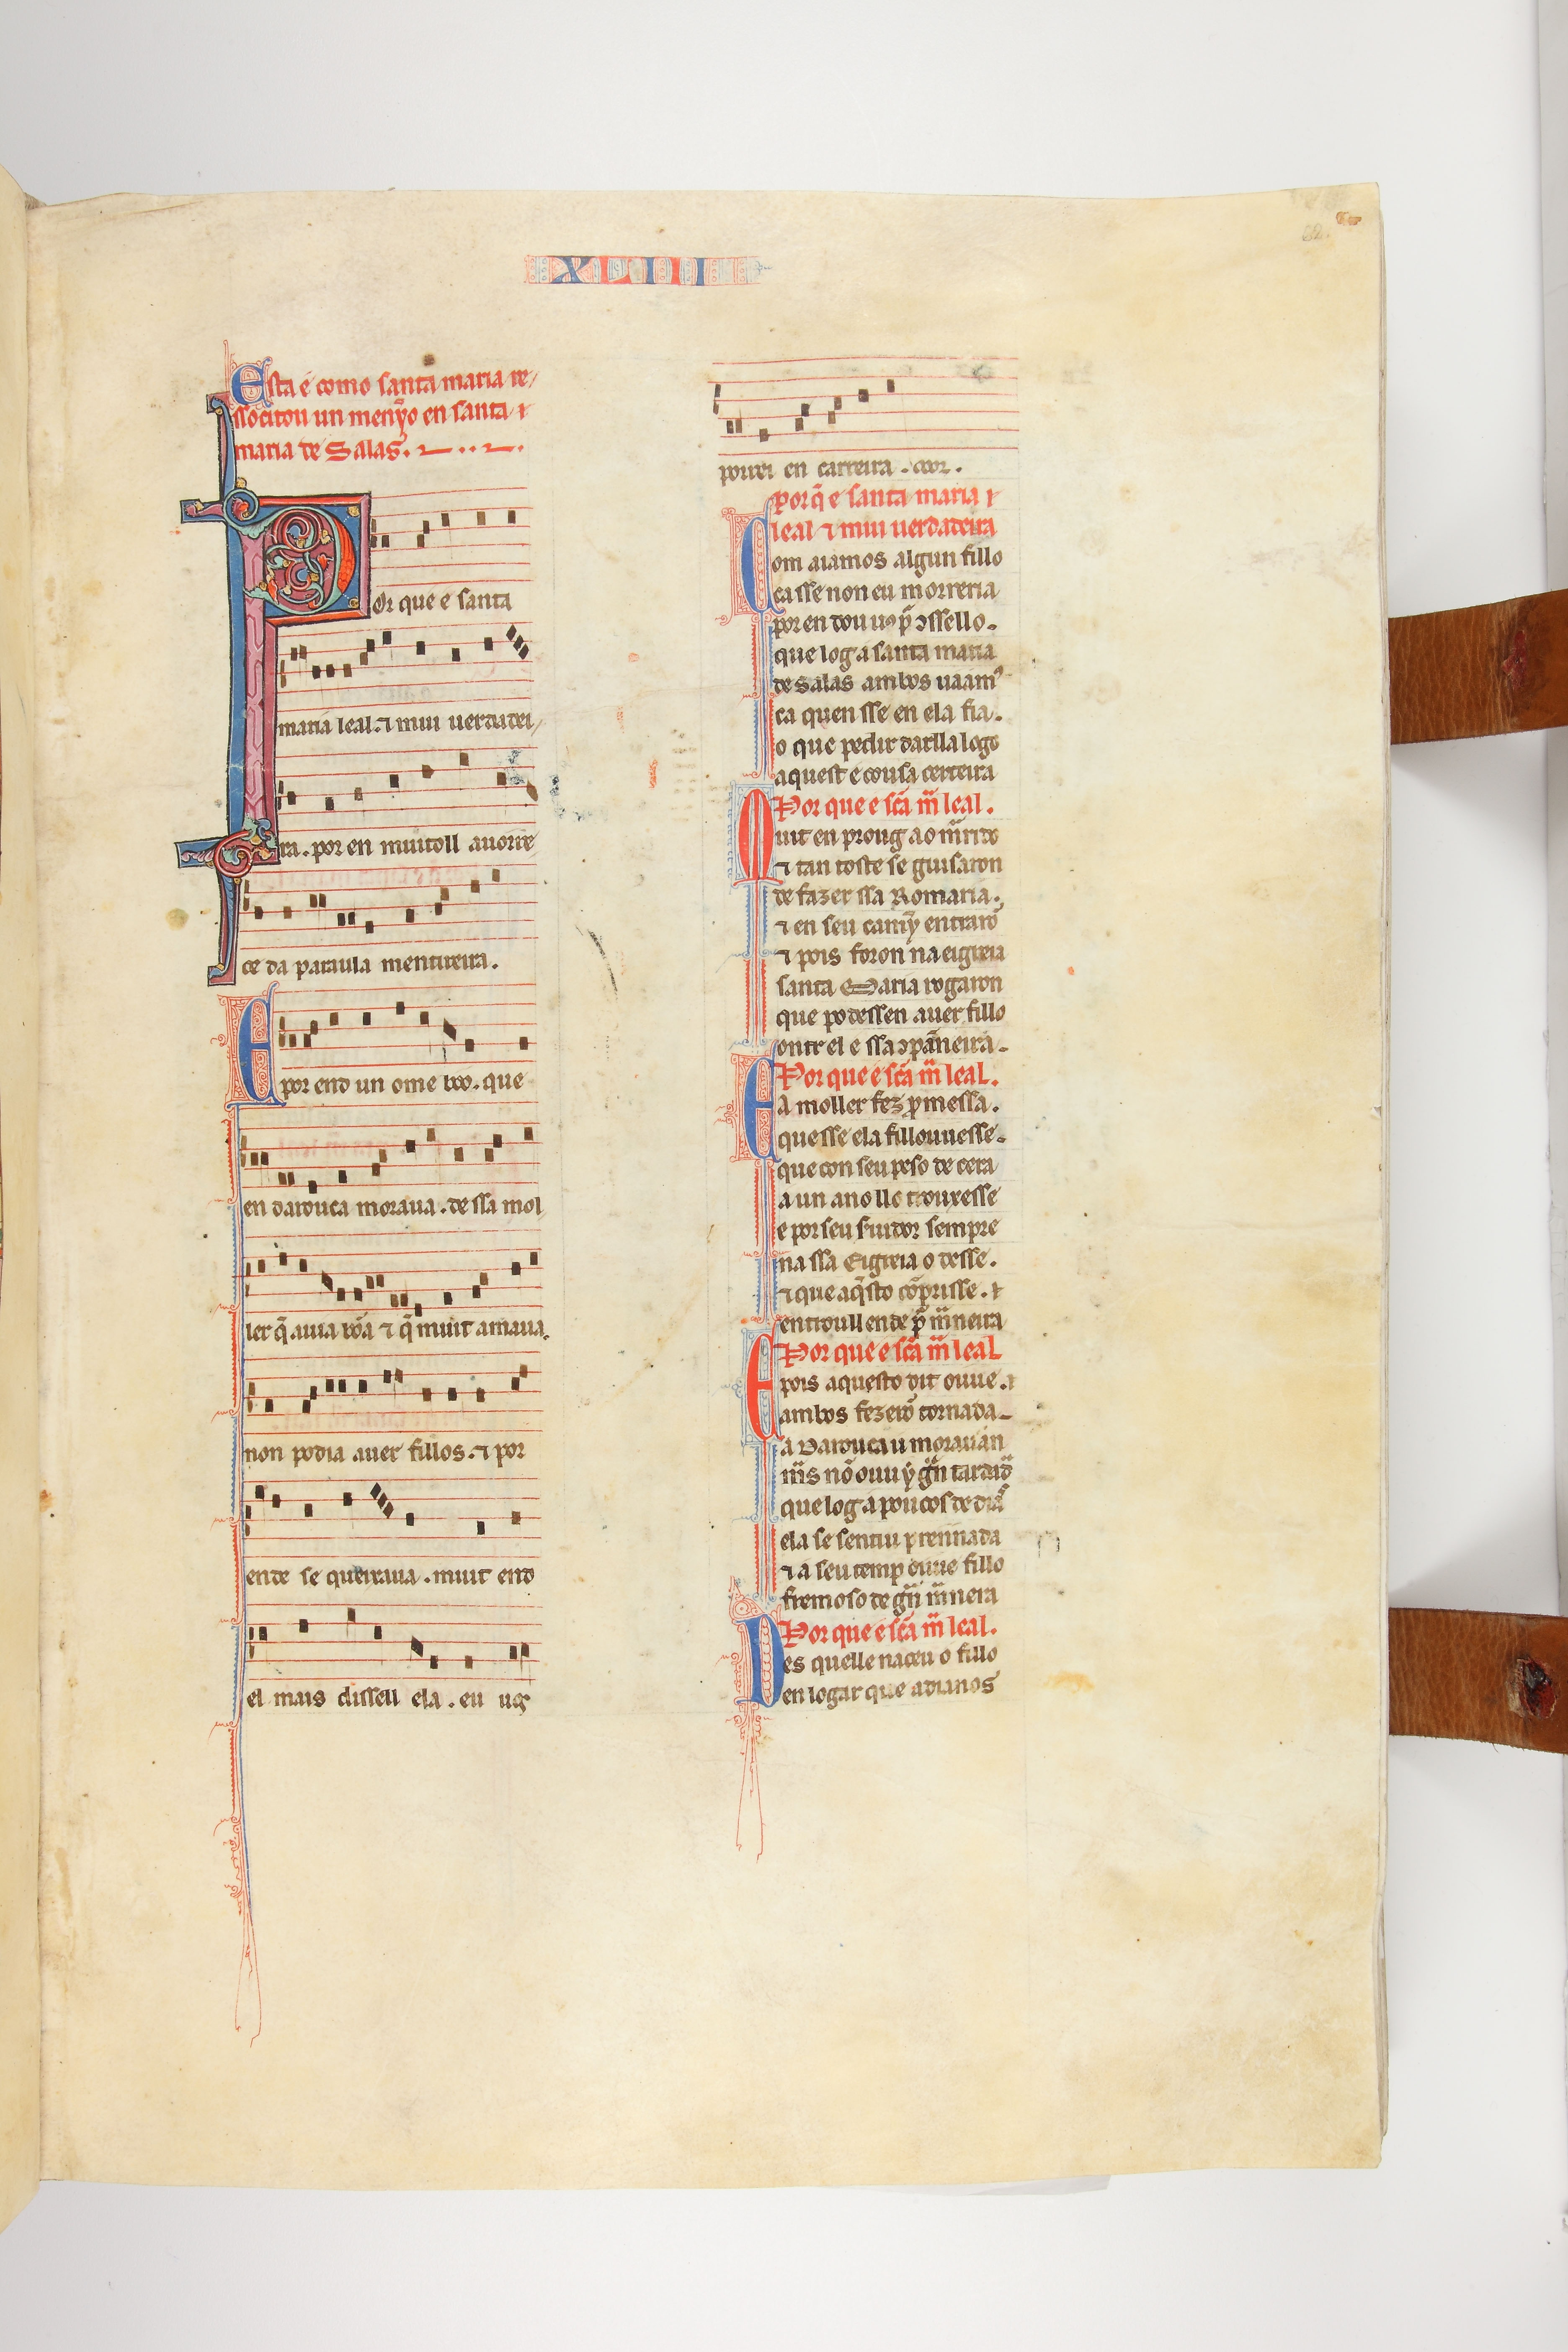 XLIII
Esta é como santa maria re/
ssocitou un menỹo en santa
maria de Salas.
Por que e santa
maria leal. ⁊ mui uerdadei/
ra. por en muitoll auorre
ce da paraula mentireira.
E por end un ome bõo. que
en darouca moraua. de ssa mol
ler q̃ auia bõa ⁊ q̃ muit amaua.
non podia auer fillos. ⁊ por
ende se queixaua. muit end
el mais dissell ela. eu uꝯ
porrei en carreira.
Porq̃ e santa maria
leal ⁊ mui uerdadeira
Com aiamos algun fillo
ca sse non eu morreria
por en dou uꝯ ꝑ ↄssello.
que log a santa maria
de Salas ambos uaamꝯ
ca quen sse en ela fia.
o que pedir darlla logo
aquest e cousa certeira
Por que e sc̃a m̃ leal.
Muit en proug ao m̃rido
⁊ tan toste se guisaron
de fazer ssa Romaria.
⁊ en seu camỹ entrarõ
⁊ pois foron na eigreia
santa Maria rogaron
que podessen auer fillo
ontr el e ssa ↄpãneira.
Por que e sc̃a m̃ leal.
E a moller fez ꝓmessa.
que sse ela fillo ouuesse.
que con seu peso de cera
a un ano llo trouxesse
e por seu s̃uidor sempre
na ssa Eigreia o desse.
⁊ que aq̃sto cõprisse.
entroull ende ꝑ m̃neira
Por que e sc̃a m̃ leal
E pois aquesto dit ouue.
ambos fezerõ tornada
a Darouca u morauan
m̃s nõ ouu ý gñ tardad̃
que log a poucos de dia᷒
ela se sentiu prennada
⁊ a seu temp ouue fillo
fremoso de gñ m̃nera
Por que e sc̃a m̃ leal.
Des quelle naceu o fillo
en logar que adianos